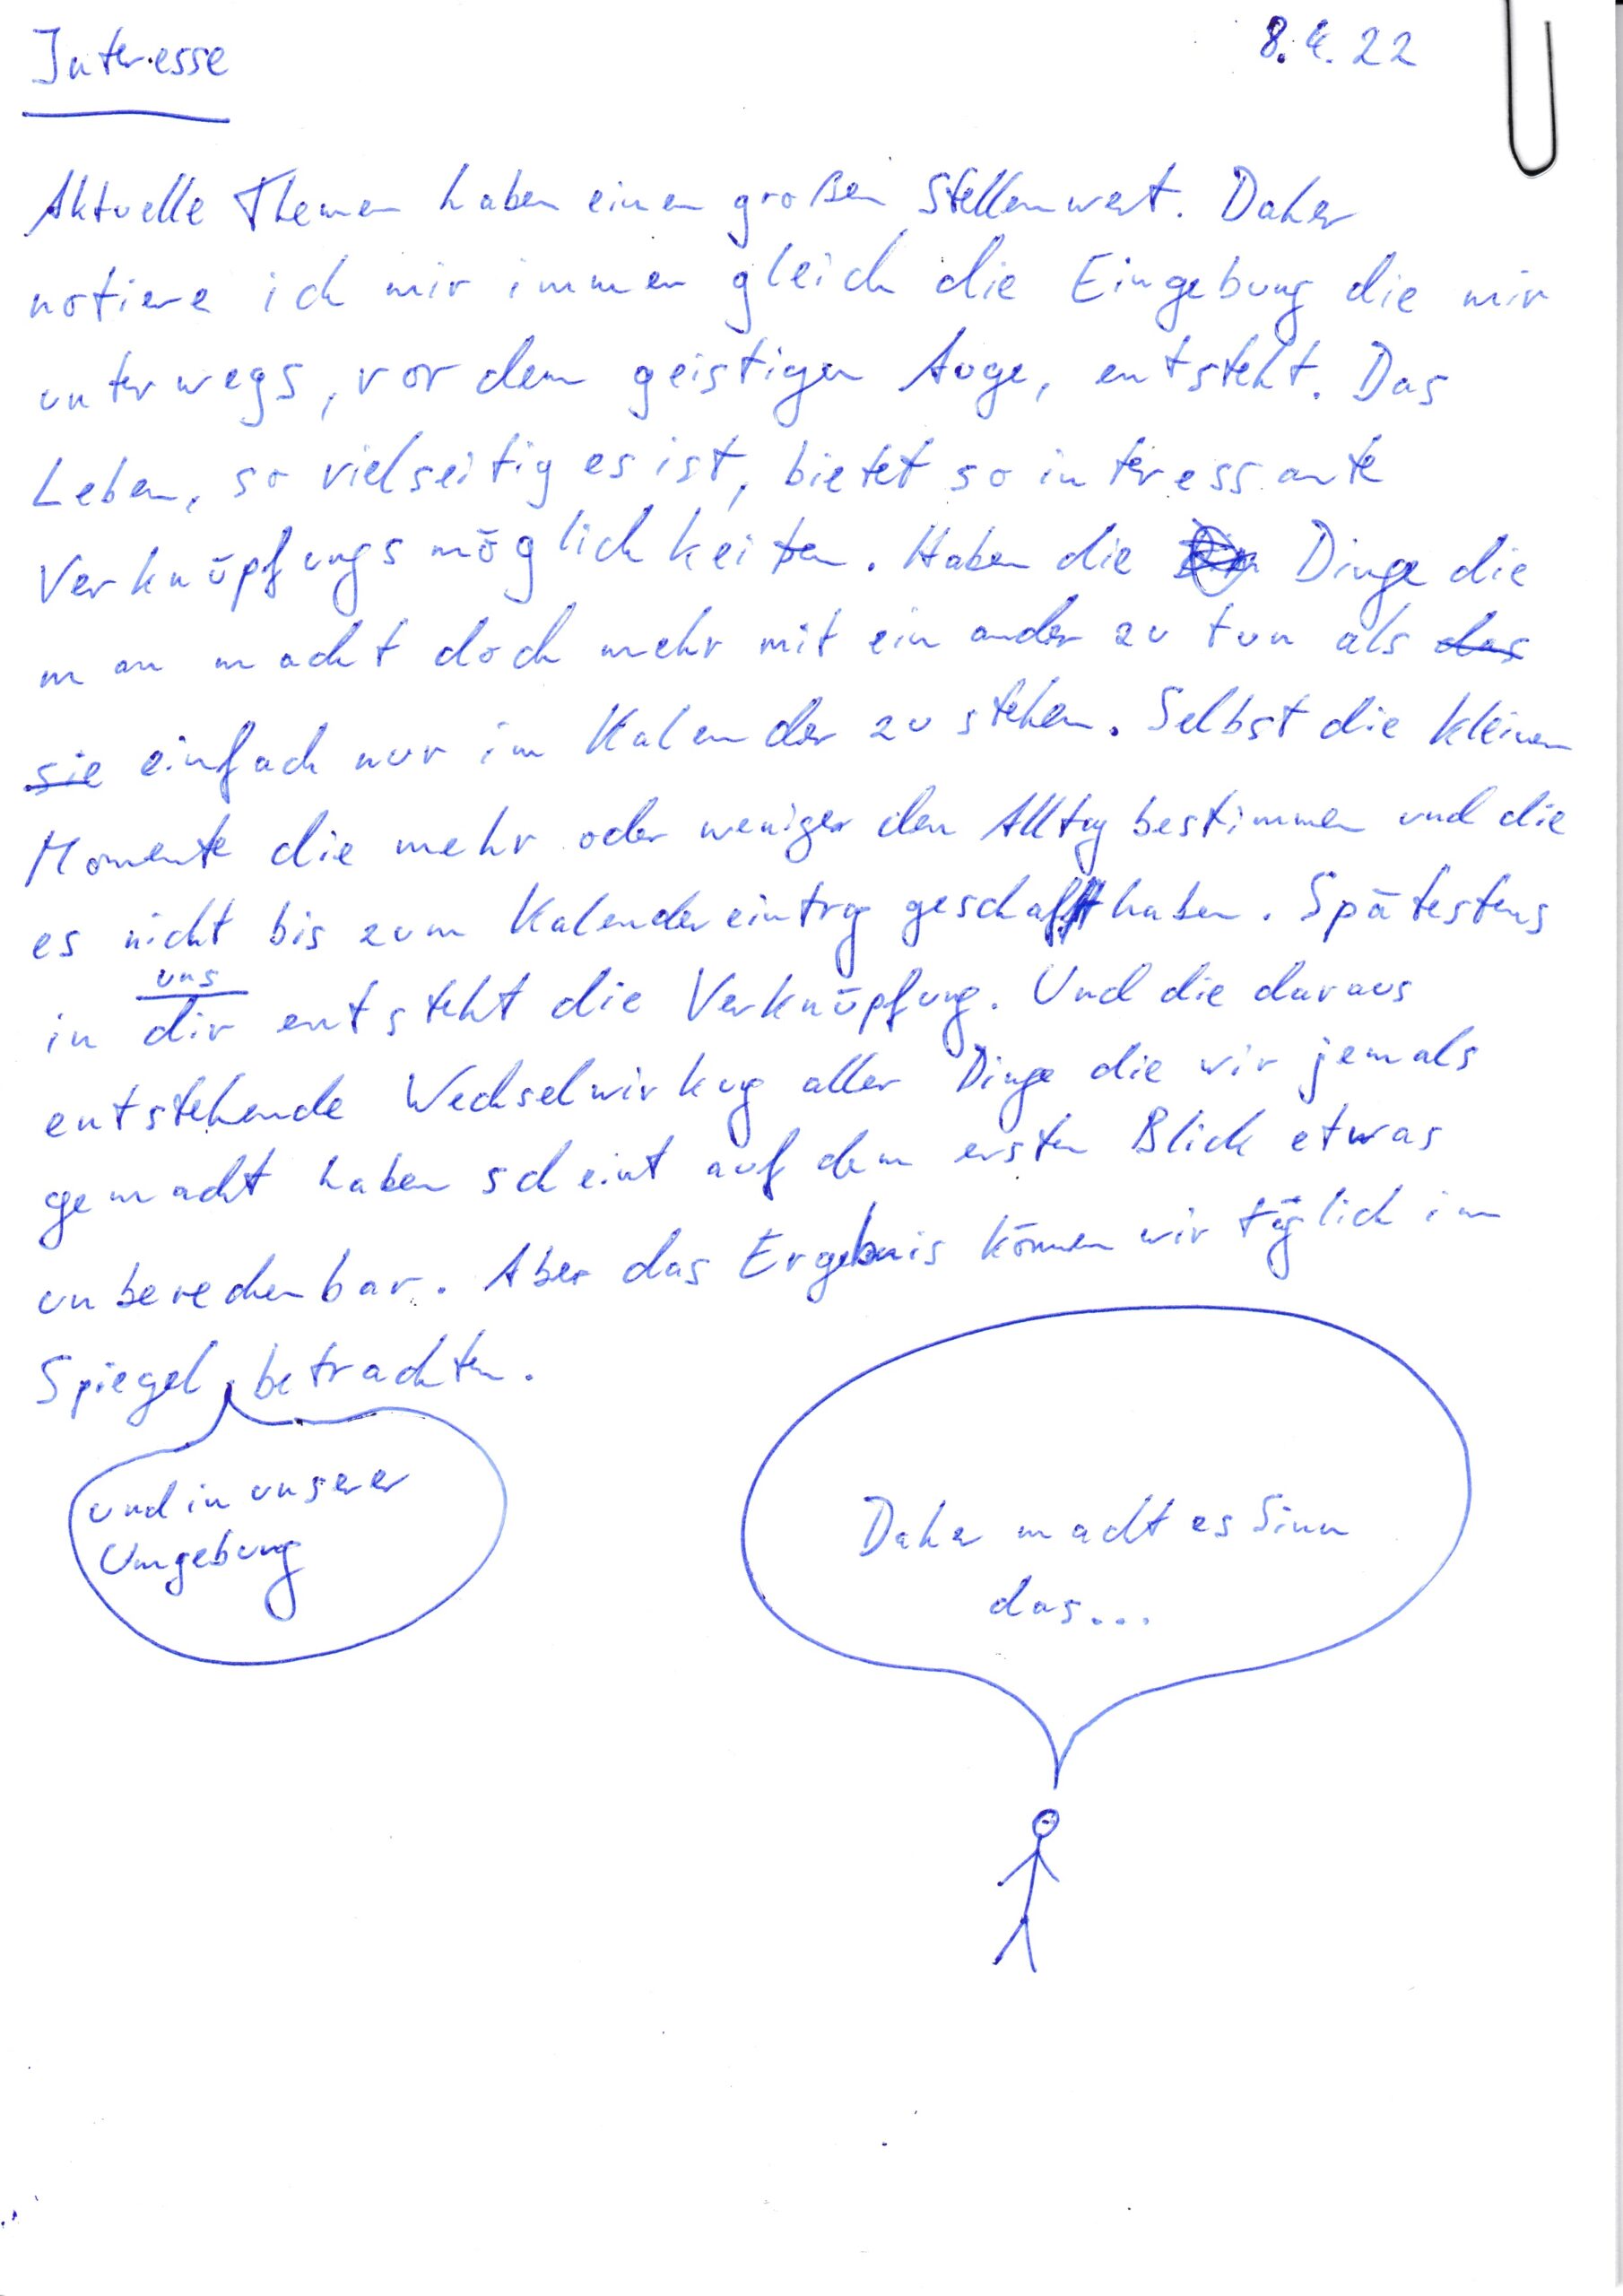 Interesse
8.4.22
Aktuelle Themen haben einen großen Stellenwert. Daher
notiere ich mir immer gleich die Eingebung die mir
unterwegs, vor dem geistigen Auge, entsteht. Das
Leben, so vielseitig es ist, bietet so interessante
Verknüpfungsmöglichkeiten. Haben die Dinge die
man macht doch mehr mit einander zu tun als das
sie einfach nur im Kalender zu stehen. Selbst die kleinen
Momente die mehr oder weniger den Alltag bestimmen und die
es nicht bis zum Kalendereintrag geschafft haben. Spätestens
uns
in dir entsteht die Verknüpfung. Und die daraus
entstehende Wechselwirkug aller Dinge die wir jemals
gemacht haben scheint auf dem ersten Blick etwas
unberechenbar. Aber das Ergebnis können wir täglich im
Spiegel betrachten.
und in unserer
Umgebung
Daher macht es Sinn
das...